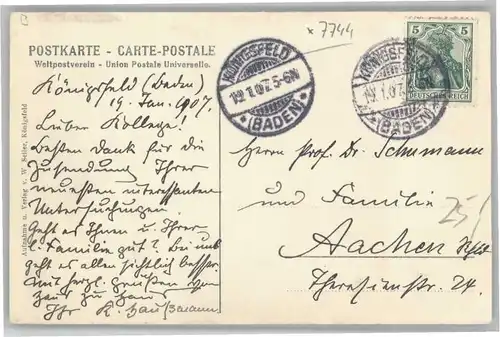 * 7744
POSTKARTE - CARTE-POSTALE
Weltpostverein - Union Postale Universelle.
Königsfeld (Baden)
19. Jan. 1907.
Lieber Kollege!
Besten Dank für die
Zusendung Ihrer
neuesten interessanten
Untersuchungen.
Geht es Ihnen u. Ihrer
l. Familie gut? Bei uns
geht es allen sichtlich besser.
Mit herzl. Grüßen von
Haus zu Haus
Ihr K.
Aufnahme u. Verlag v. W. Seiler, Königsfeld
KÖNIGSFELD
19.1.07. 5-6N
(BADEN)
KÖNIGSFELD
19.1.07.
(BADEN)
5 5
DEUTSCHES REICH
Herrn Prof. Dr. Schumann
und Familie
25!
Aachen
Theresienstr. 24.